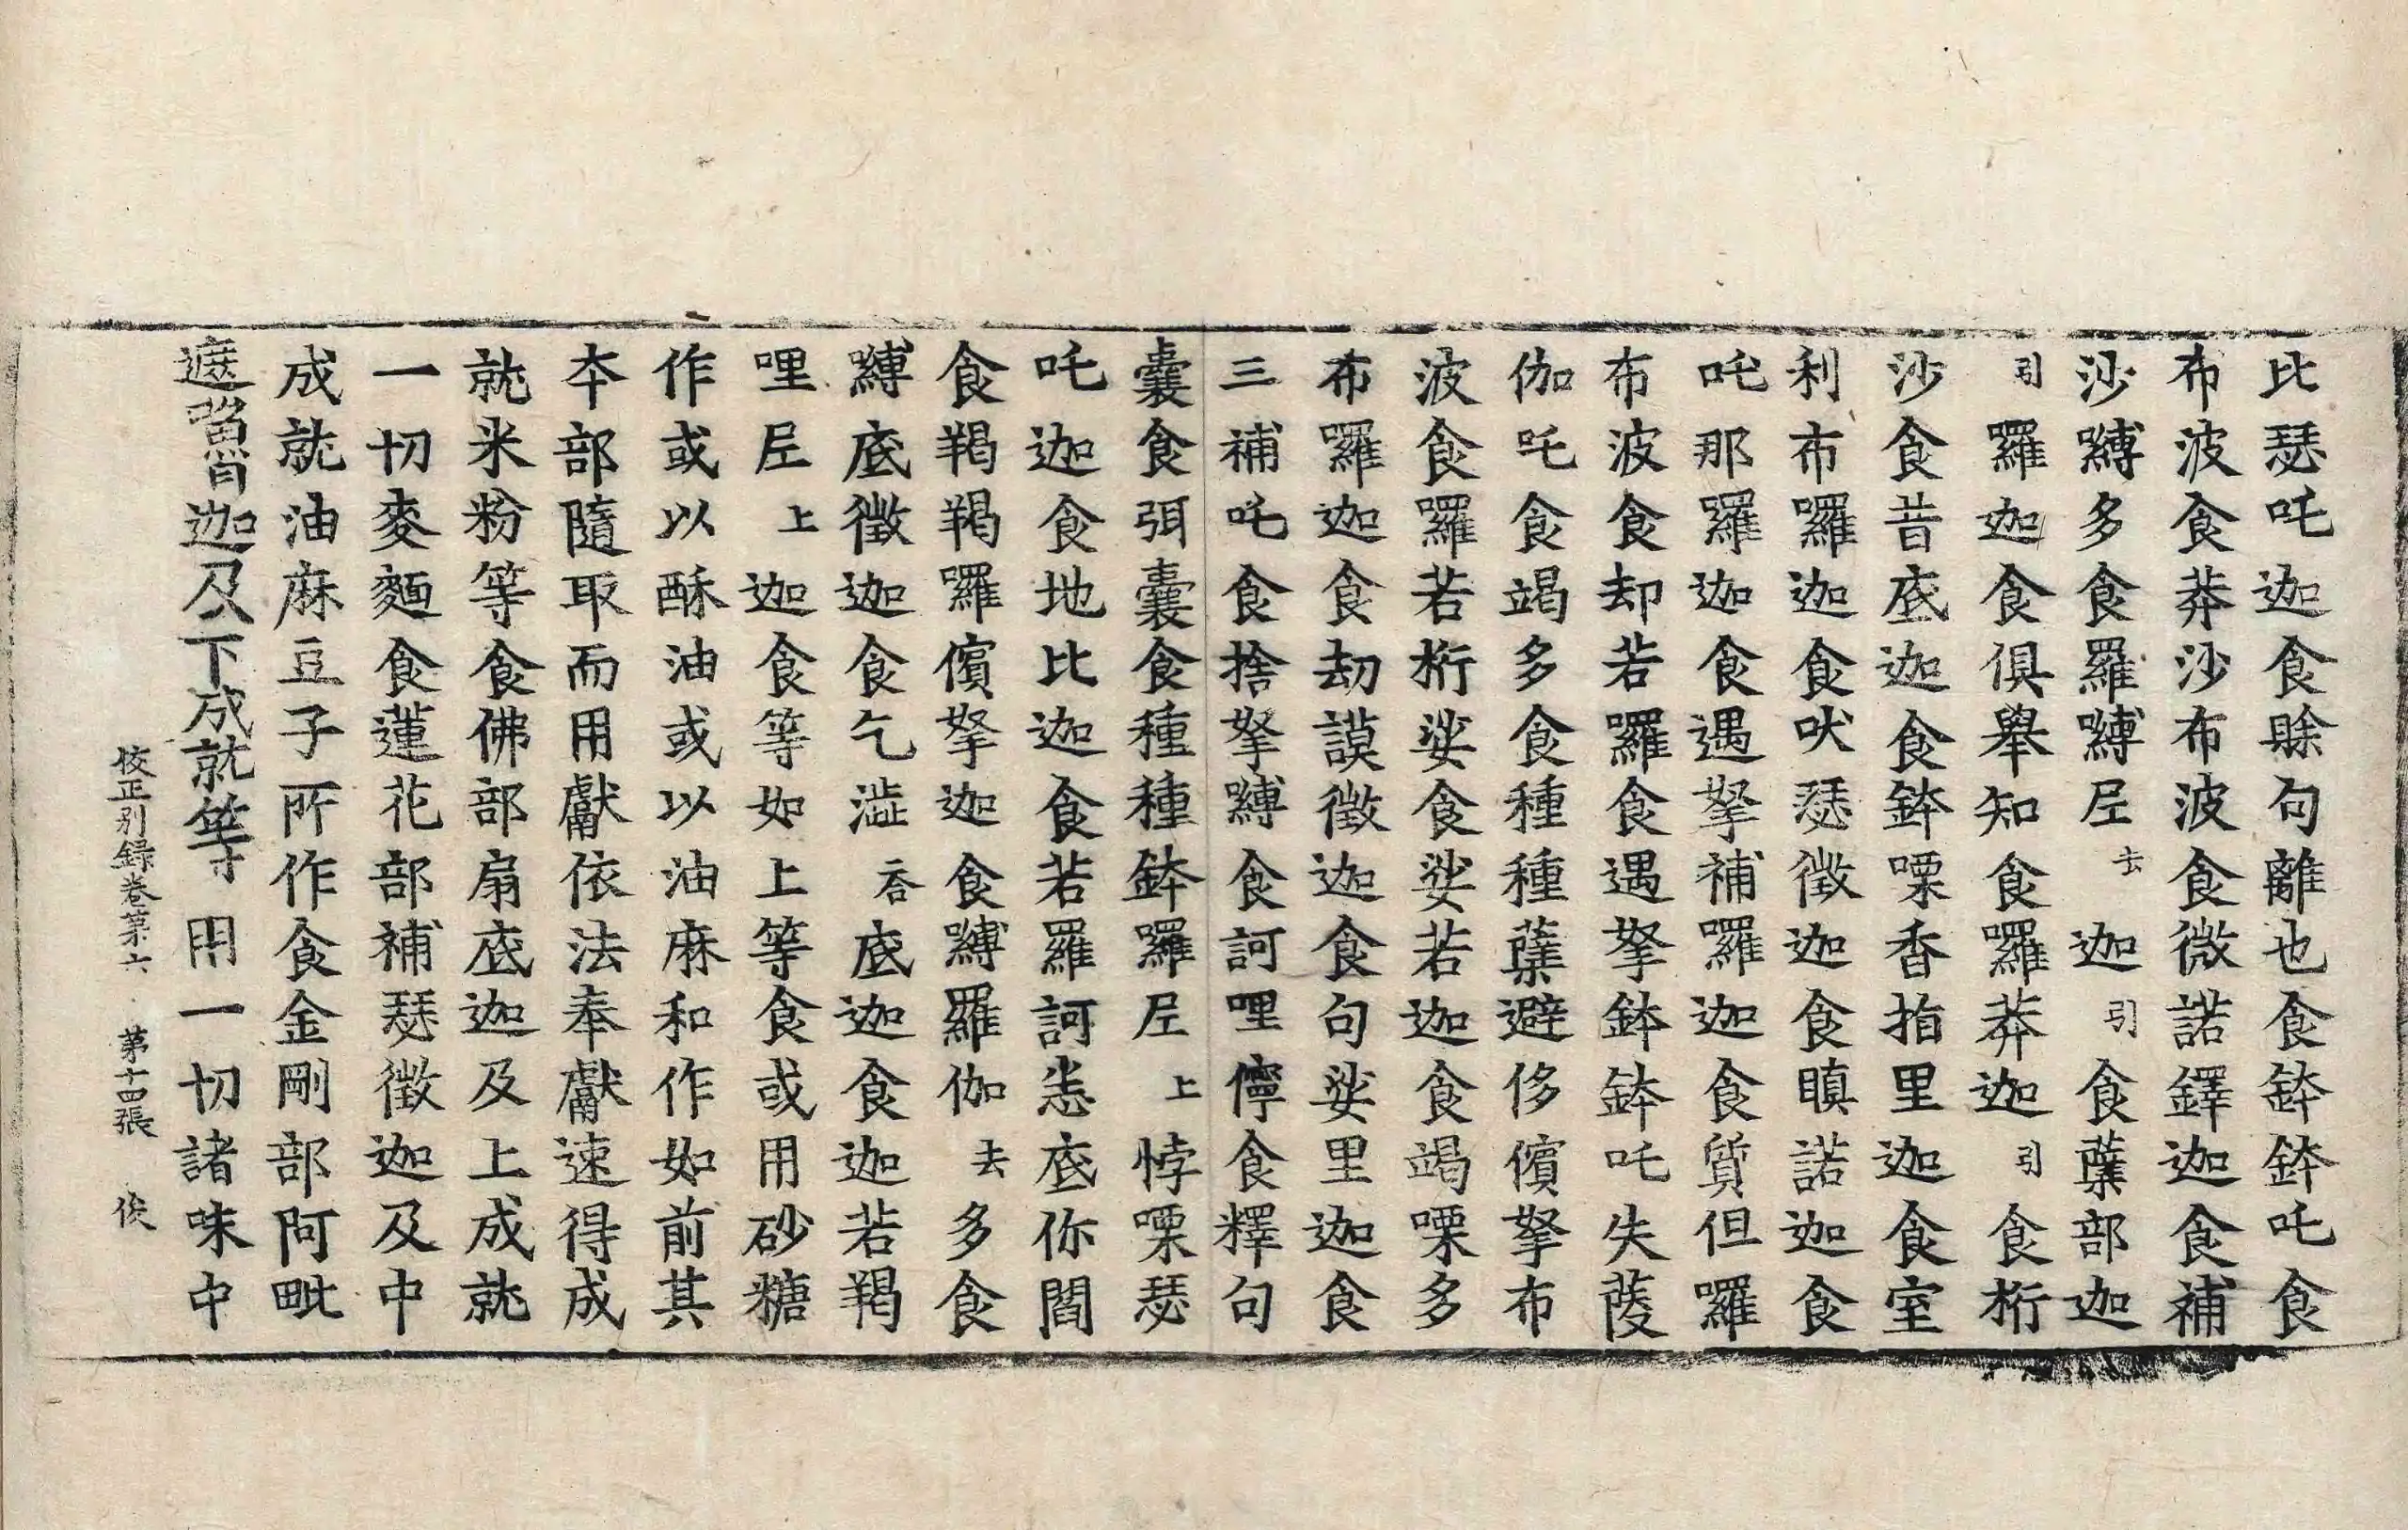 比瑟吒迦食賖句離也食鉢鉢吒食
布波食莽沙布波食微諾鐸迦食補
沙嚩多食羅嚩尼去迦引食蘖部迦
引囉迦食俱舉知食囉莽迦引食桁
沙食昔底迦食鉢㗚香指里迦食室
利布囉迦食吠瑟徵迦食瞋諾迦食
吒那囉迦食遏拏補囉迦食質但囉
布波食却若囉食遏拏鉢吒失薐
伽吒食竭多食種種蘖避侈儐拏布
波食囉若桁娑食娑若迦食竭㗚多
布囉迦食劫謨徵迦食句娑里迦食
三補吒食捨拏嚩食訶哩儜食釋句
囊食弭囊食種種鉢囉尼上悖㗚瑟
吒迦食地比迦食若羅訶恙底你閻
食羯羯囉儐拏迦食嚩羅伽去多食
嚩底徵迦食乞澁合底迦食迦若羯
哩尼上迦食等如上等食或用砂糖
作或以酥油或以油麻和作如前其
本部隨取而用獻依法奉獻速得成
就米粉等食佛部扇底迦及上成就
一切麥麵食蓮花部補瑟徵迦及中
成就油麻豆子所作食金剛部阿毗
遮嚕迦及下成就等用一切諸味中
挍正別録卷第六 第十四張 俊